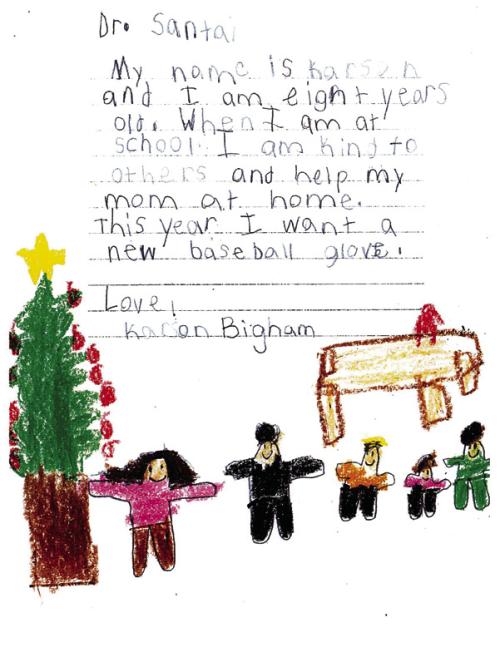 Dr. Santa,
My name is Karsen
and I am eight years
old. When I am at
school I am kind to
others and help my
mom at home.
This year I want a
new baseball glove.
Love,
Karsen Bigham